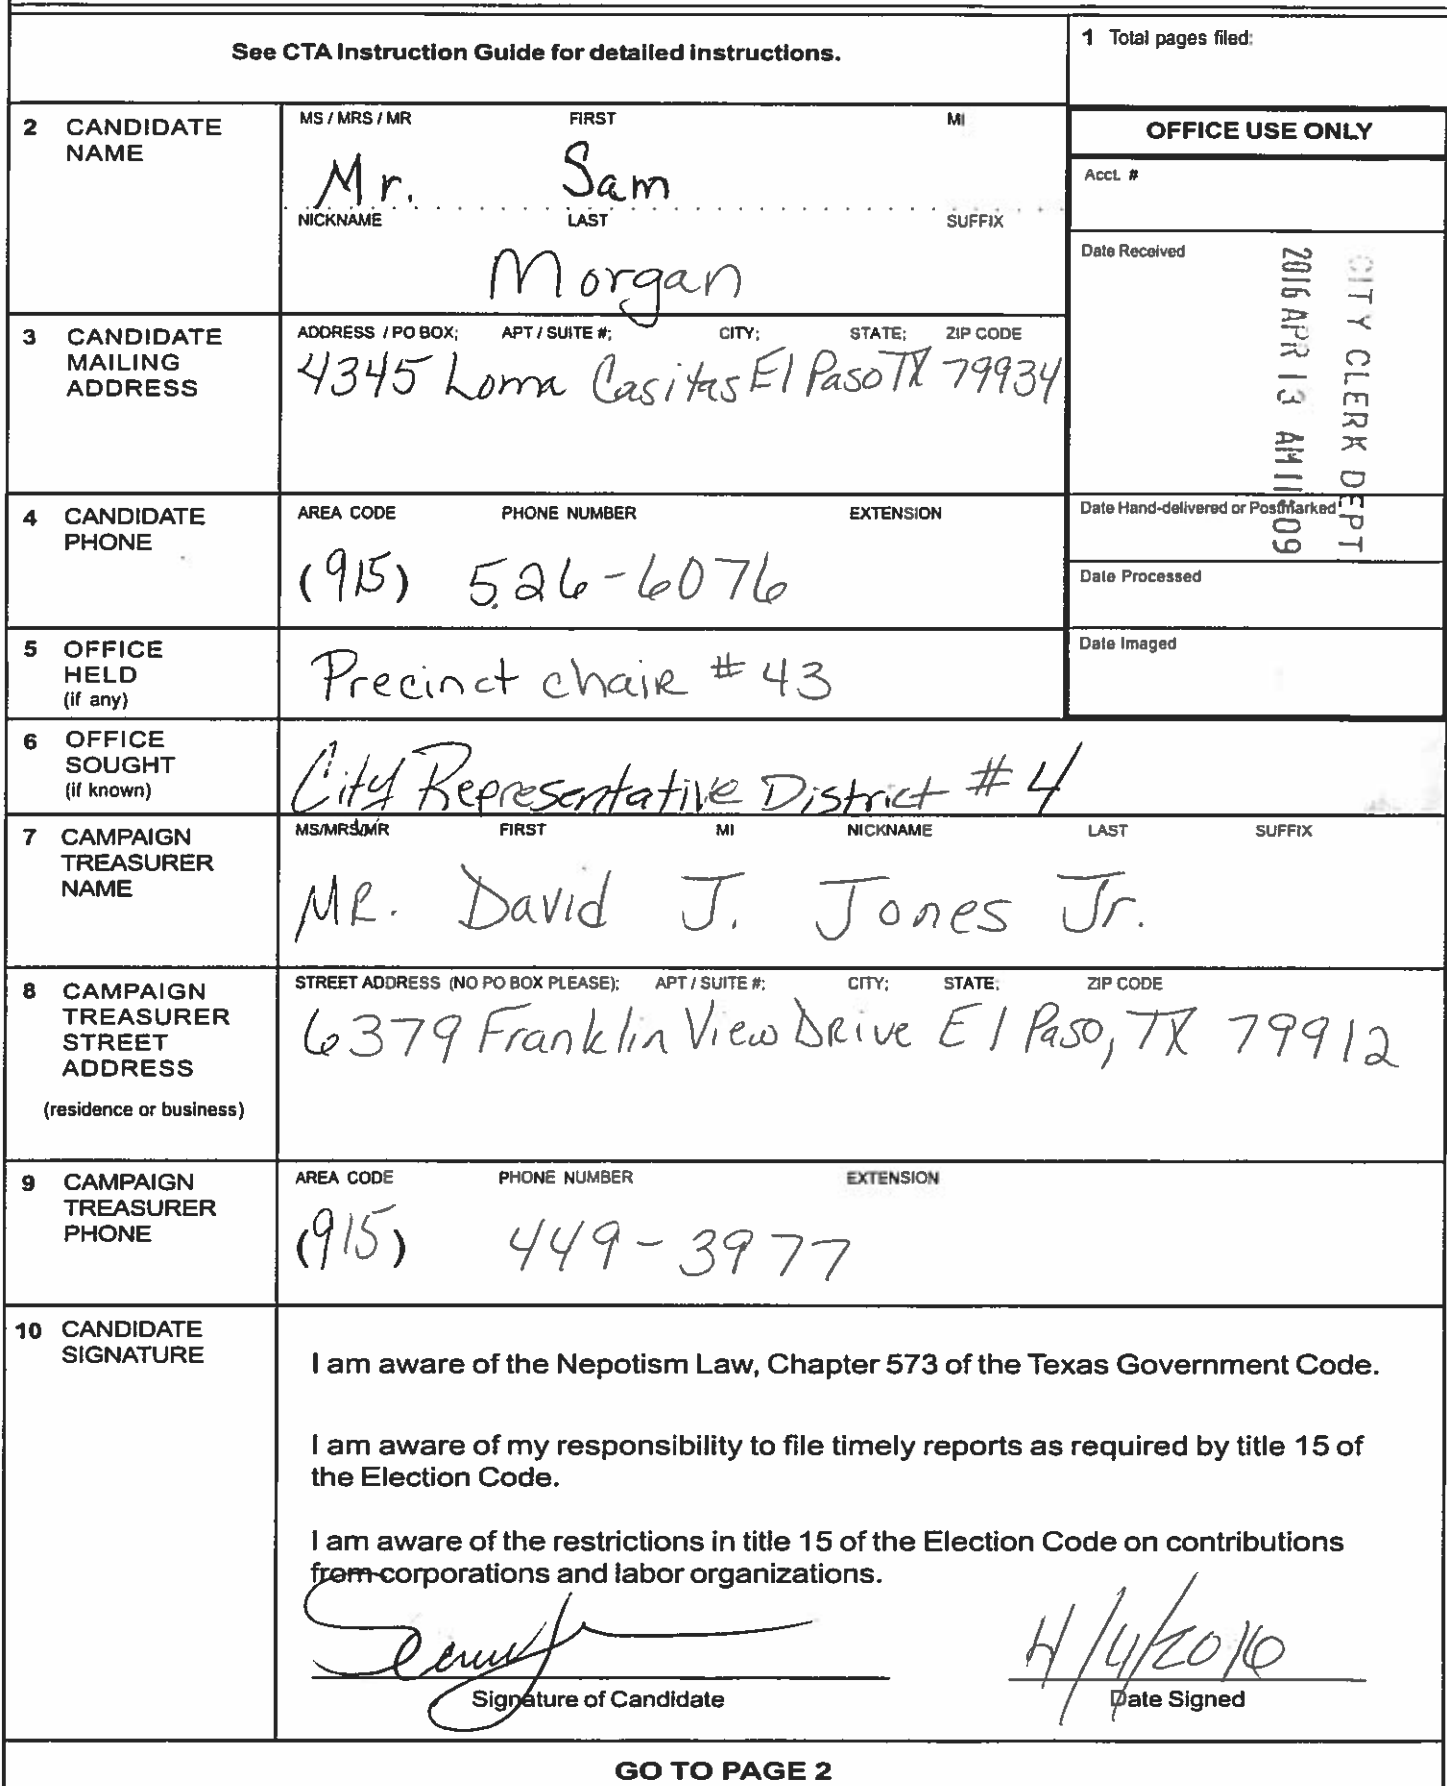 See CTA Instruction Guide for detailed instructions.
1 Total pages filed:
2 CANDIDATE NAME
MS / MRS / MR FIRST MI
Mr. Sam
NICKNAME LAST SUFFIX
Morgan
OFFICE USE ONLY
Acct. #
Date Received
CITY CLERK DEPT
2016 APR 13 AM 11:09
3 CANDIDATE MAILING ADDRESS
ADDRESS / PO BOX; APT / SUITE #; CITY; STATE; ZIP CODE
4345 Loma Casitas El Paso TX 79934
Date Hand-delivered or Postmarked
4 CANDIDATE PHONE
AREA CODE PHONE NUMBER EXTENSION
(915) 526-6076
Date Processed
5 OFFICE HELD (if any)
Precinct chair # 43
Date Imaged
6 OFFICE SOUGHT (if known)
City Representative District # 4
7 CAMPAIGN TREASURER NAME
MS/MRS/MR FIRST MI NICKNAME LAST SUFFIX
MR. David J. Jones Jr.
8 CAMPAIGN TREASURER STREET ADDRESS
(residence or business)
STREET ADDRESS (NO PO BOX PLEASE); APT / SUITE #; CITY; STATE; ZIP CODE
6379 Franklin View Drive El Paso, TX 79912
9 CAMPAIGN TREASURER PHONE
AREA CODE PHONE NUMBER EXTENSION
(915) 449-3977
10 CANDIDATE SIGNATURE
I am aware of the Nepotism Law, Chapter 573 of the Texas Government Code.
I am aware of my responsibility to file timely reports as required by title 15 of
the Election Code.
I am aware of the restrictions in title 15 of the Election Code on contributions
from corporations and labor organizations.
4/4/2016
Signature of Candidate Date Signed
GO TO PAGE 2